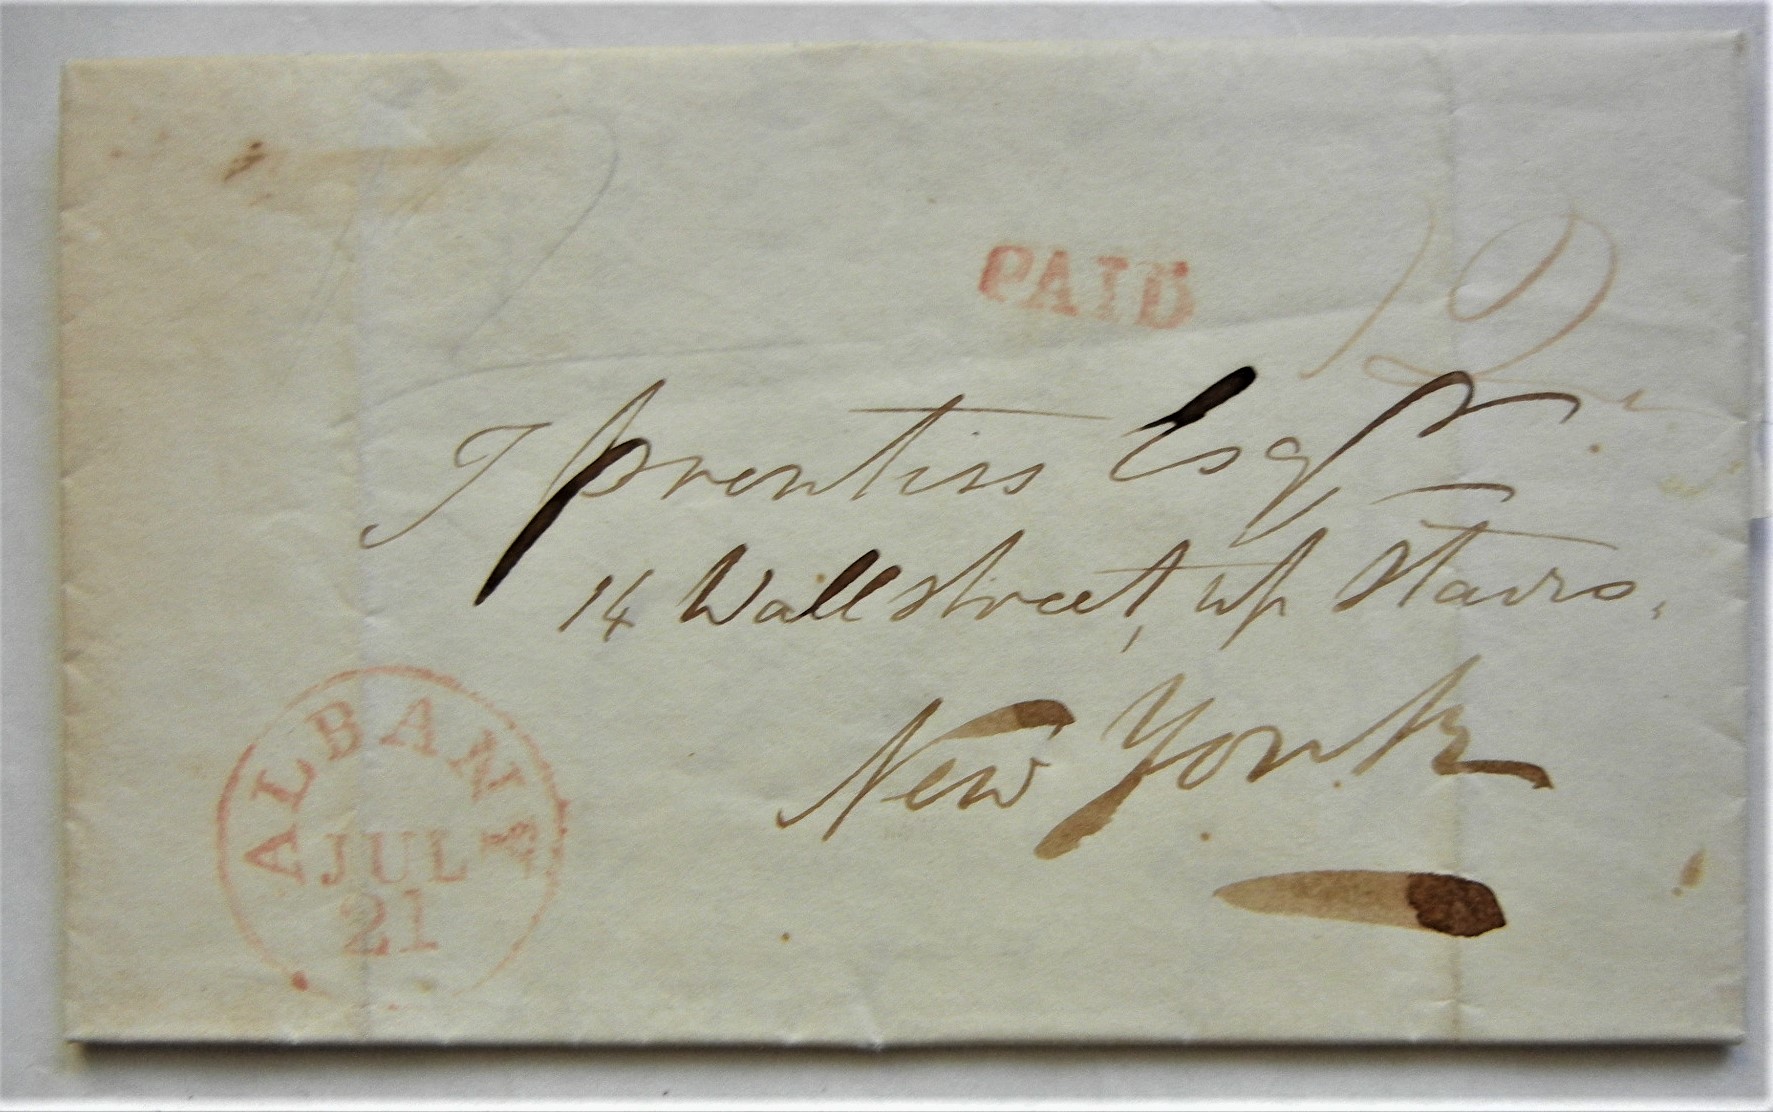 PAID
12
J Prentiss Esqr
14 Wall street, up Stairs,
New York
ALBANY
JUL
21